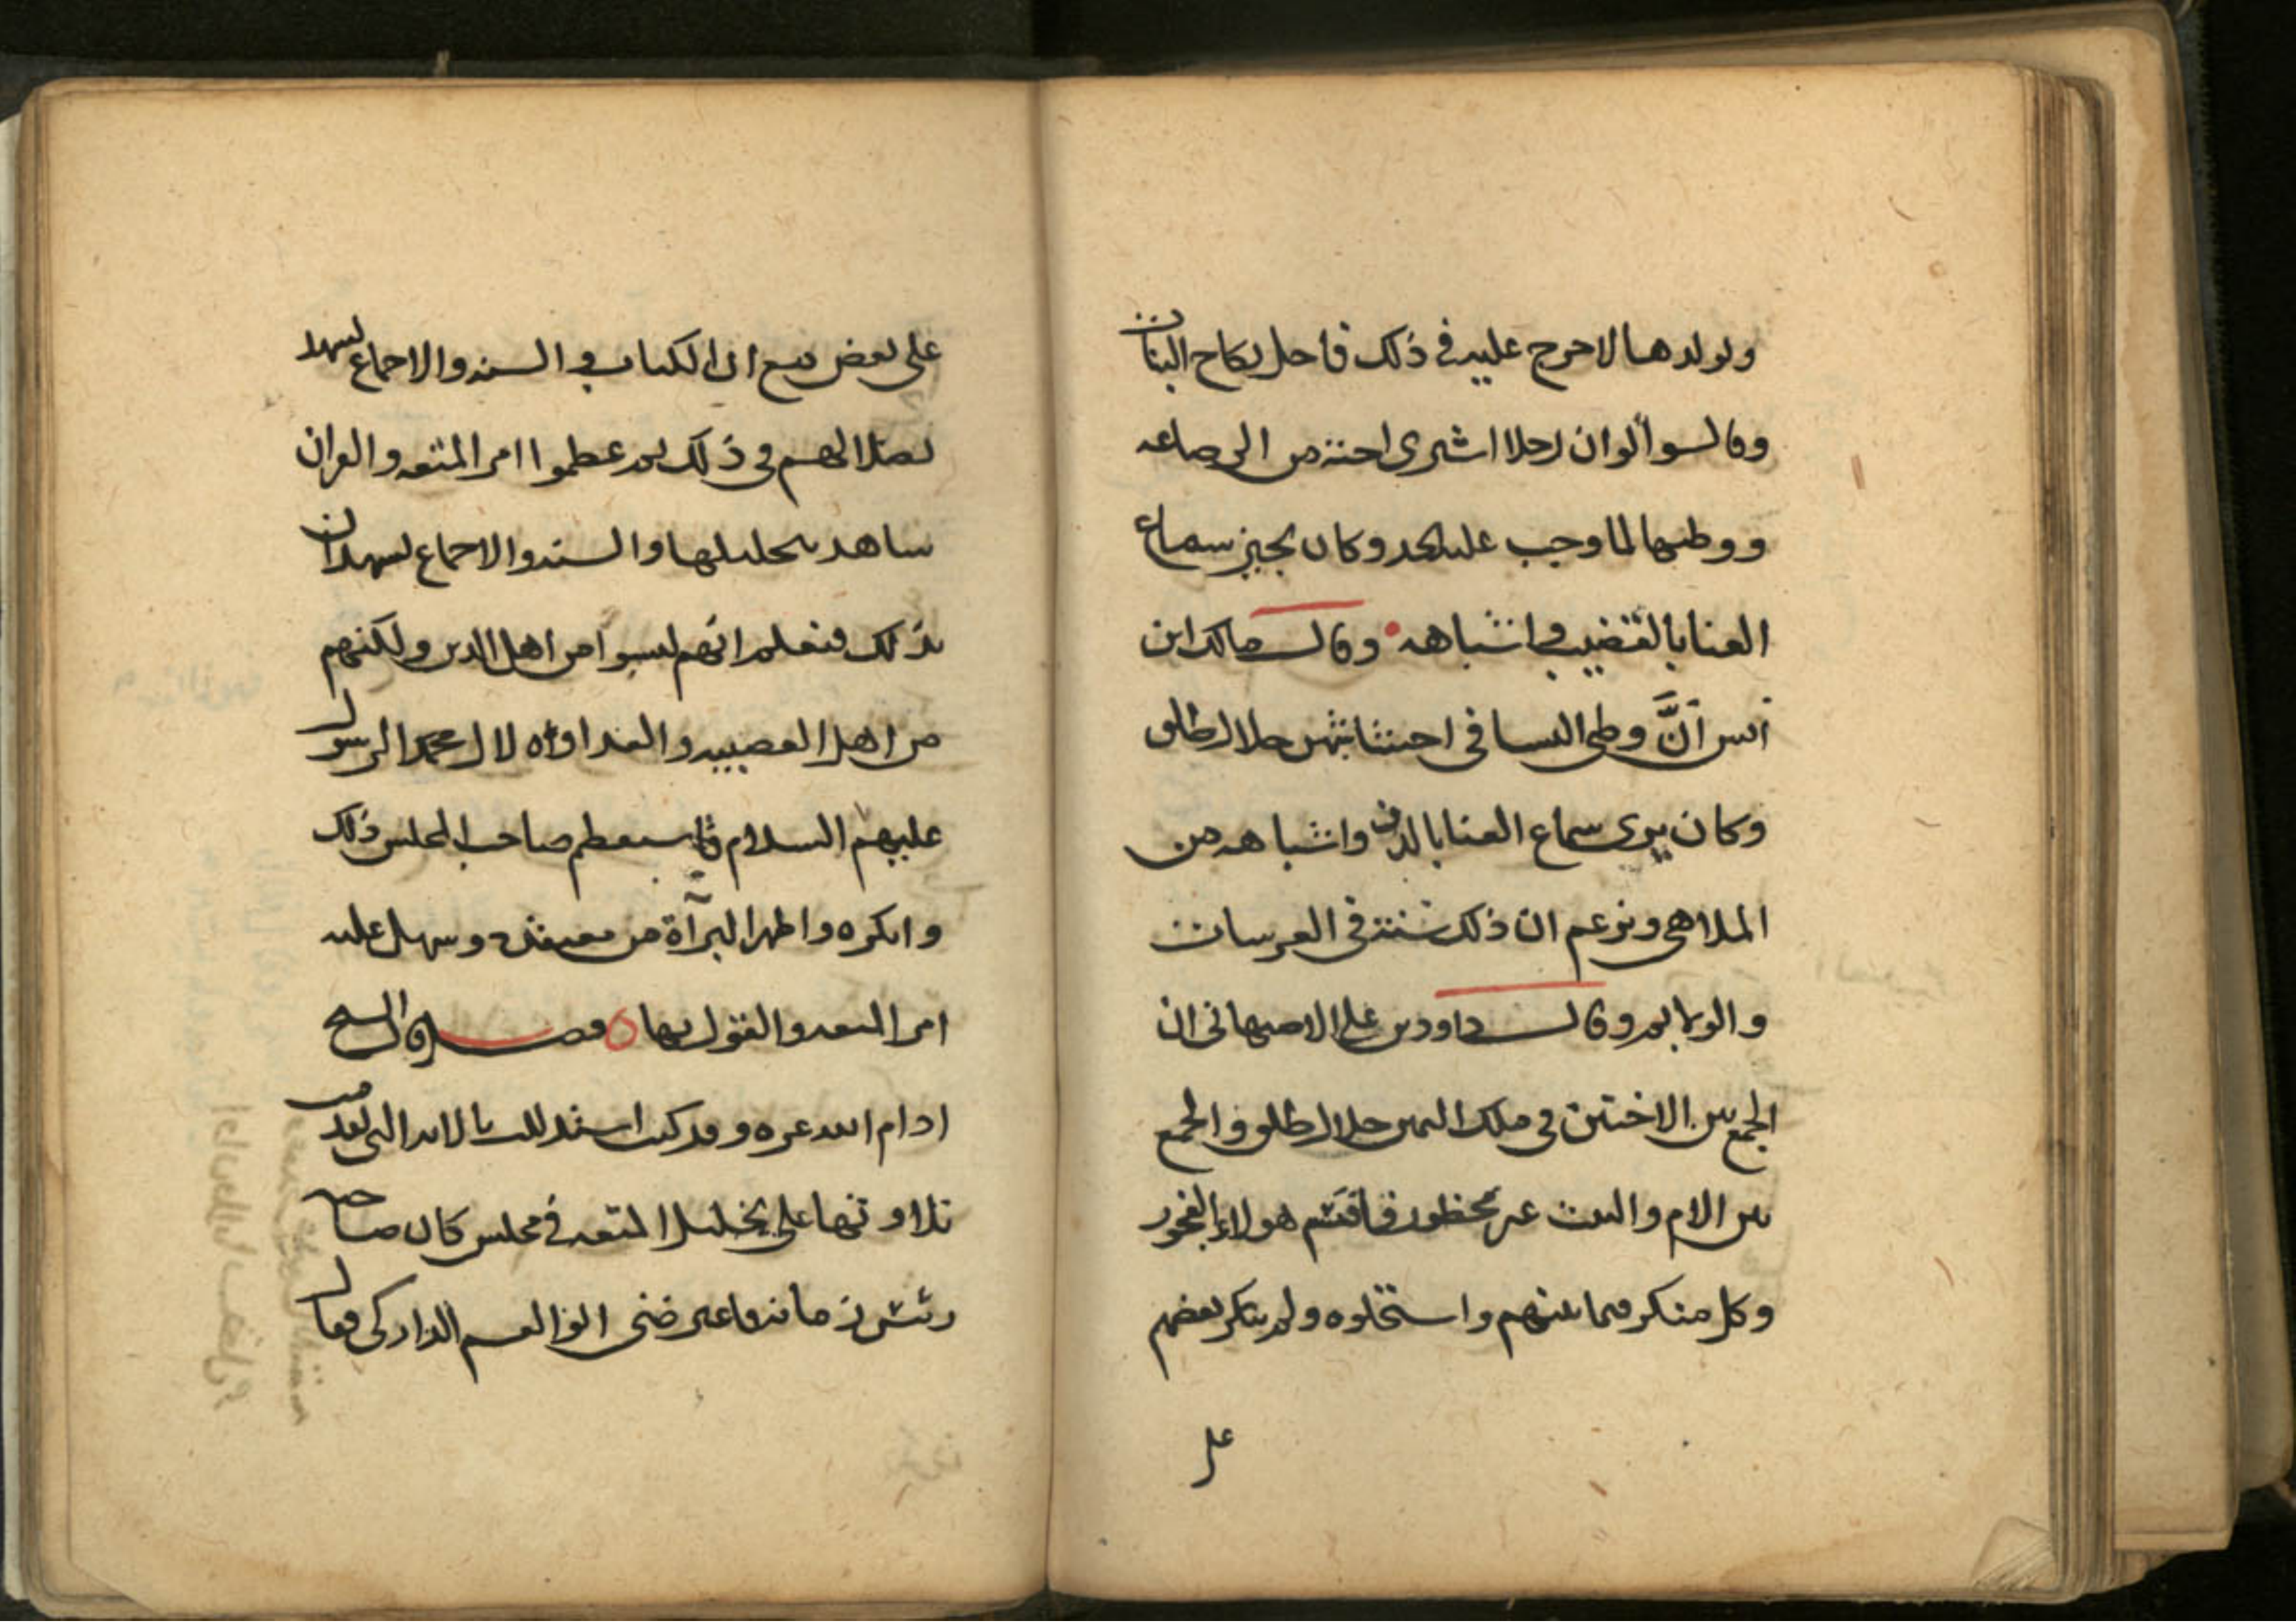 ويولدها لا حرج عليه في ذلك فاحل نكاح البنات
وقال سوا لو ان رجلا اشترى اخته من الرضاعه
ووطيها لما وجب عليه الحد وكان يجيز سماع
الغنا بالقضيب واشباهه وقال مالك ابن
انس انَّ وطي النسا في احشاشهن حلال طلق
وكان يرى سماع الغنا بالدف واشباهه من
الملاهي ويزعم ان ذلك سنة في العرسات
والولايم وقال داود بن علي الاصبهاني ان
الجمع بين الاختين في ملك اليمين حلال طلق والجمع
بين الام والبنت غير محظور فاقتسم هولاء الفجور
وكل منكر فيما بينهم واستحلوه ولم ينكر بعضهم
على
على بعض مع ان الكتاب والسنه والاجماع يشهد
بضلالهم في ذلك ثم عظموا امر المتعه والقران
شاهد بتحليلها والسنه والاجماع يشهدان
بذلك فتعلم انهم ليسوا من اهل الدين ولكنهم
من اهل العصبيه والعداوه لال محمد الرسول
عليهم السلام فاستعظم صاحب المجلس ذلك
وانكره واظهر البرآة من معتقده وسهل عليه
امر المتعه والقول بها فصل وقال الشيخ
ادام الله عزه وقد كنت استدللت بالايه التي تقدمت
تلاوتها على تحليل المتعه في مجلس كان صاحبه
رئيس زمانه فاعترضني ابو القسم الداركي فقال